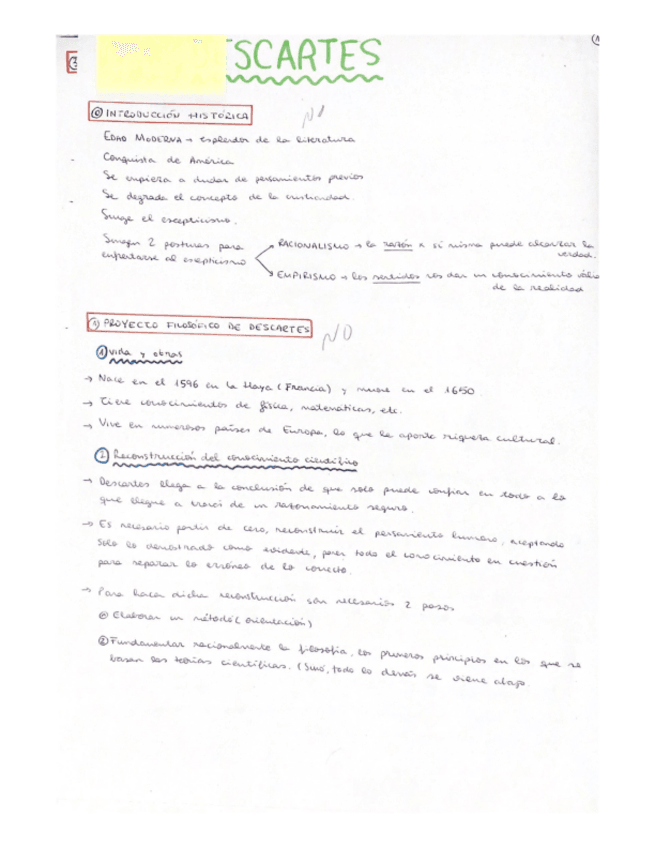 ESCARTES
⓪ INTRODUCCIÓN HISTÓRICA
NO
EDAD MODERNA → esplendor de la literatura
Conquista de América
Se empieza a dudar de pensamientos previos
Se degrada el concepto de la cristiandad.
Surge el escepticismo.
Surgen 2 posturas para
enfrentarse al escepticismo
RACIONALISMO → la razón x sí misma puede alcanzar la
verdad.
EMPIRISMO → los sentidos nos dan un conocimiento válido
de la realidad
1) PROYECTO FILOSÓFICO DE DESCARTES
NO
① Vida y obras
→ Nace en el 1596 en La Haya (Francia) y muere en el 1650.
→ Tiene conocimientos de física, matemáticas, etc.
→ Vive en numerosos países de Europa, lo que le aporta riqueza cultural.
② Reconstrucción del conocimiento científico
→ Descartes llega a la conclusión de que solo puede confiar en todo a lo
que llegue a través de un razonamiento seguro.
→ Es necesario partir de cero, reconstruir el pensamiento humano, aceptando
solo lo demostrado como evidente, poner todo el conocimiento en cuestión
para separar lo erróneo de lo correcto.
→ Para hacer dicha reconstrucción son necesarios 2 pasos
① Elaborar un método (orientación)
② Fundamentar racionalmente la filosofía, los primeros principios en los que se
basan las teorías científicas. (Sino, todo lo demás se viene abajo.